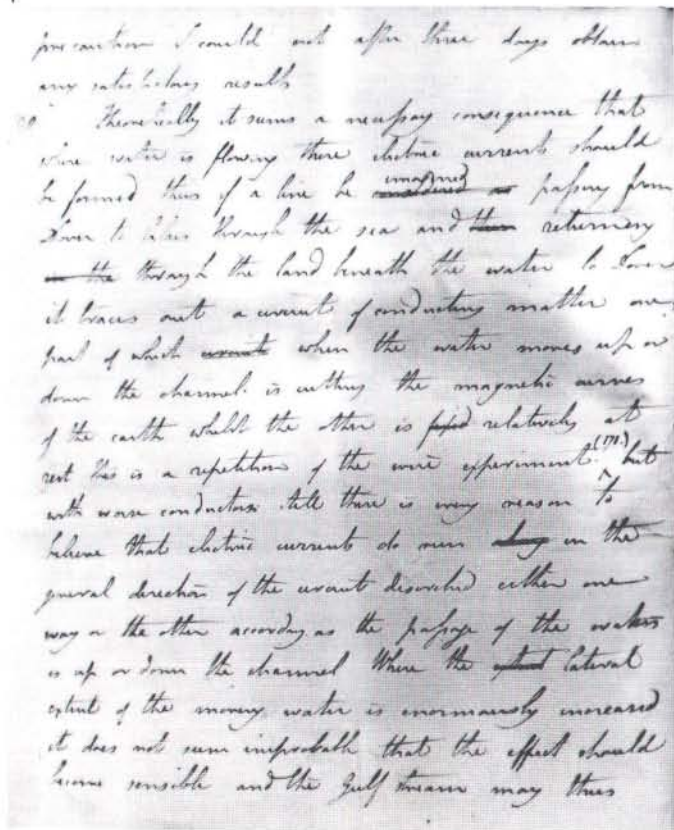 precaution I could not after three days obtain
any satisfactory results
Theoretically it seems a necessary consequence that
where water is flowing there electric currents should
be formed thus if a line be imagined passing from
Dover to Calais through the sea and then returning
in the through the land beneath the water to Dover
it traces out a circuit of conducting matter one
part of which circuit when the water moves up or
down the channel is cutting the magnetic curves
of the earth whilst the other is fixed relatively at
rest This is a repetition of the wire experiment (171.) but
with worse conductors still there is every reason to
believe that electric currents do run in the
general direction of the circuit described either one
way or the other according as the passage of the waters
is up or down the channel Where the extent lateral
extent of the moving water is enormously increased
it does not seem improbable that the effect should
become sensible and the gulf stream may thus